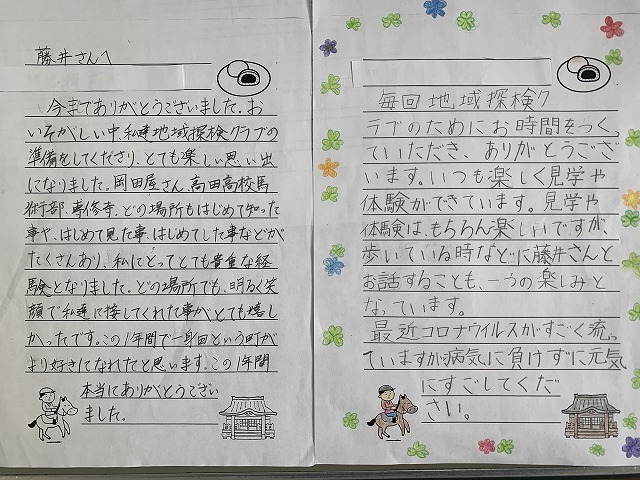 藤井さんへ
今までありがとうございました。お
いそがしい中私達地域探検クラブの
準備をしてくださり、とても楽しい思い出
になりました。岡田屋さん、高田高校馬
術部、専修寺、どの場所もはじめて知った
事や、はじめて見た事、はじめてした事などが
たくさんあり、私にとってとても貴重な経
験となりました。どの場所でも、明るく笑
顔で私達に接してくれた事がとても嬉し
かったです。この1年間で一身田という町が
より好きになれたと思います。この1年間
本当にありがとうござい
ました。
毎回地域探検ク
ラブのためにお時間をつく、
ていただき、ありがとうござ
います。いつも楽しく見学や
体験ができています。見学や
体験は、もちろん楽しいですが、
歩いている時などに藤井さんと
お話することも、一つの楽しみと
なっています。
最近コロナウイルスがすごく流っ
ていますが病気に負けずに元気
にすごしてくだ
さい。